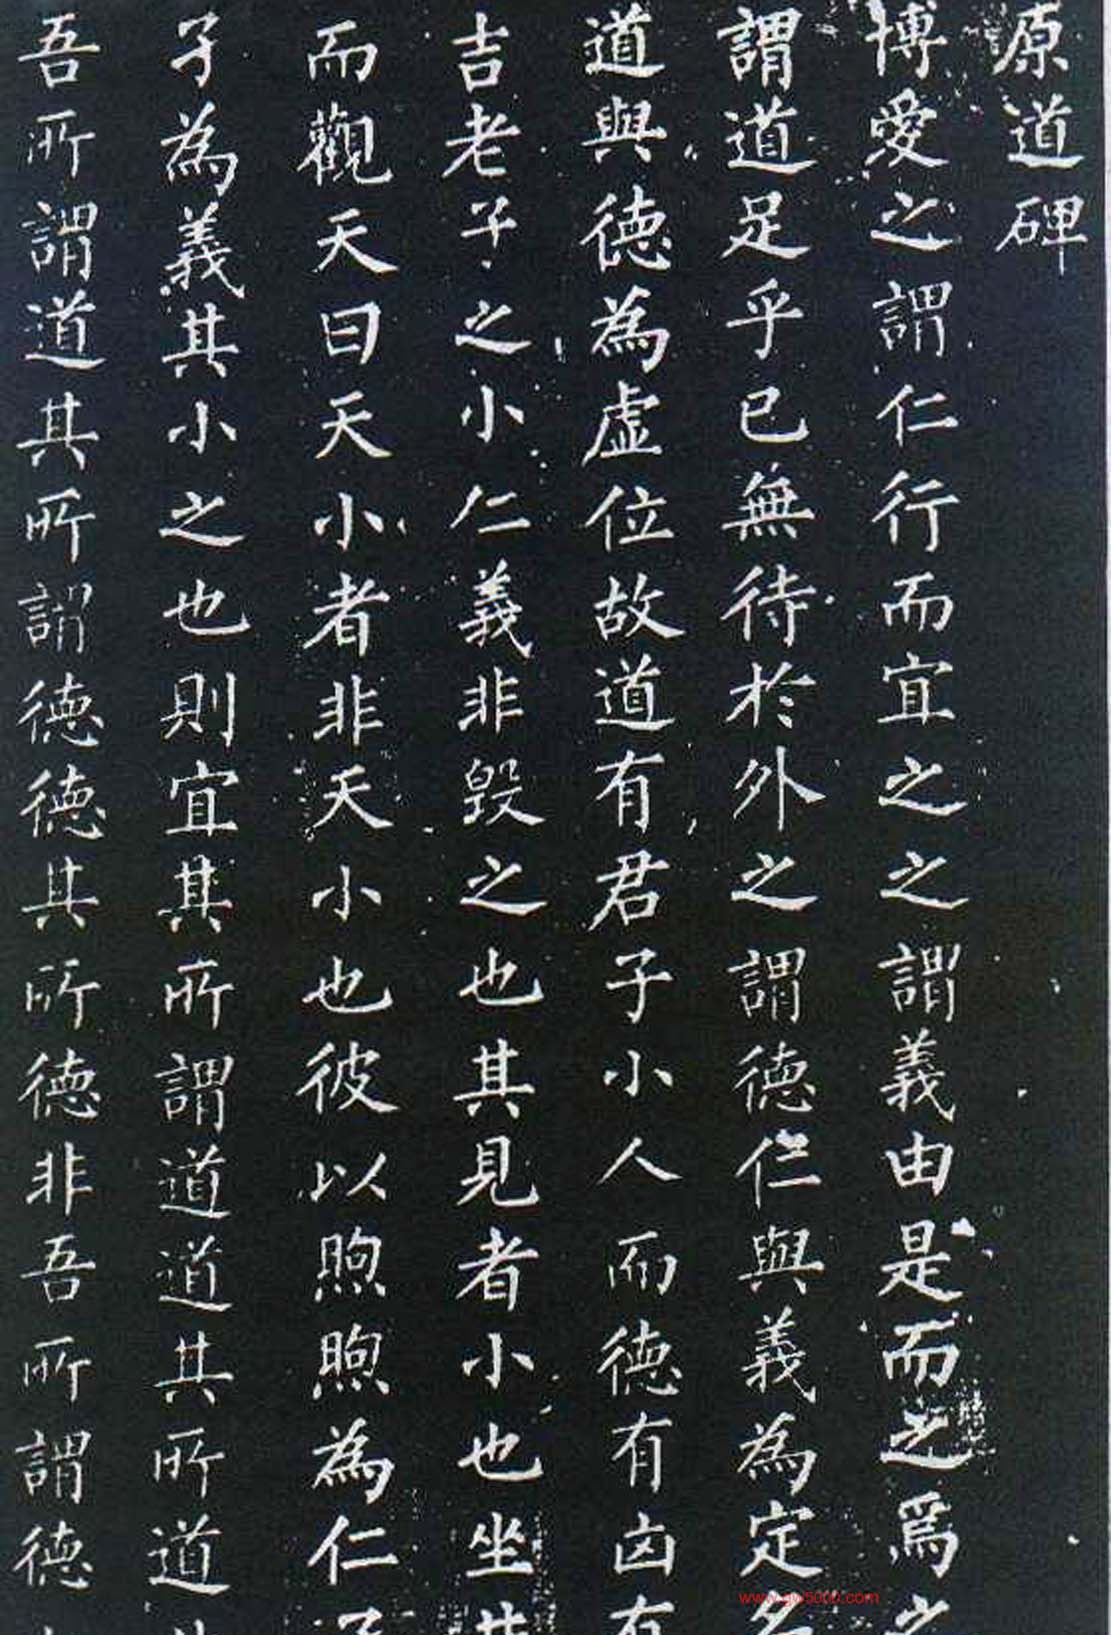 原道碑
博愛之謂仁行而宜之之謂義由是而之爲之
謂道足乎已無待於外之謂德仁與義為定名
道與德為虛位故道有君子小人而德有凶有
吉老子之小仁義非毀之也其見者小也坐井
而觀天曰天小者非天小也彼以煦煦為仁孑
孑為義其小之也則宜其所謂道道其所道
吾所謂道其所謂德德其所德非吾所謂德